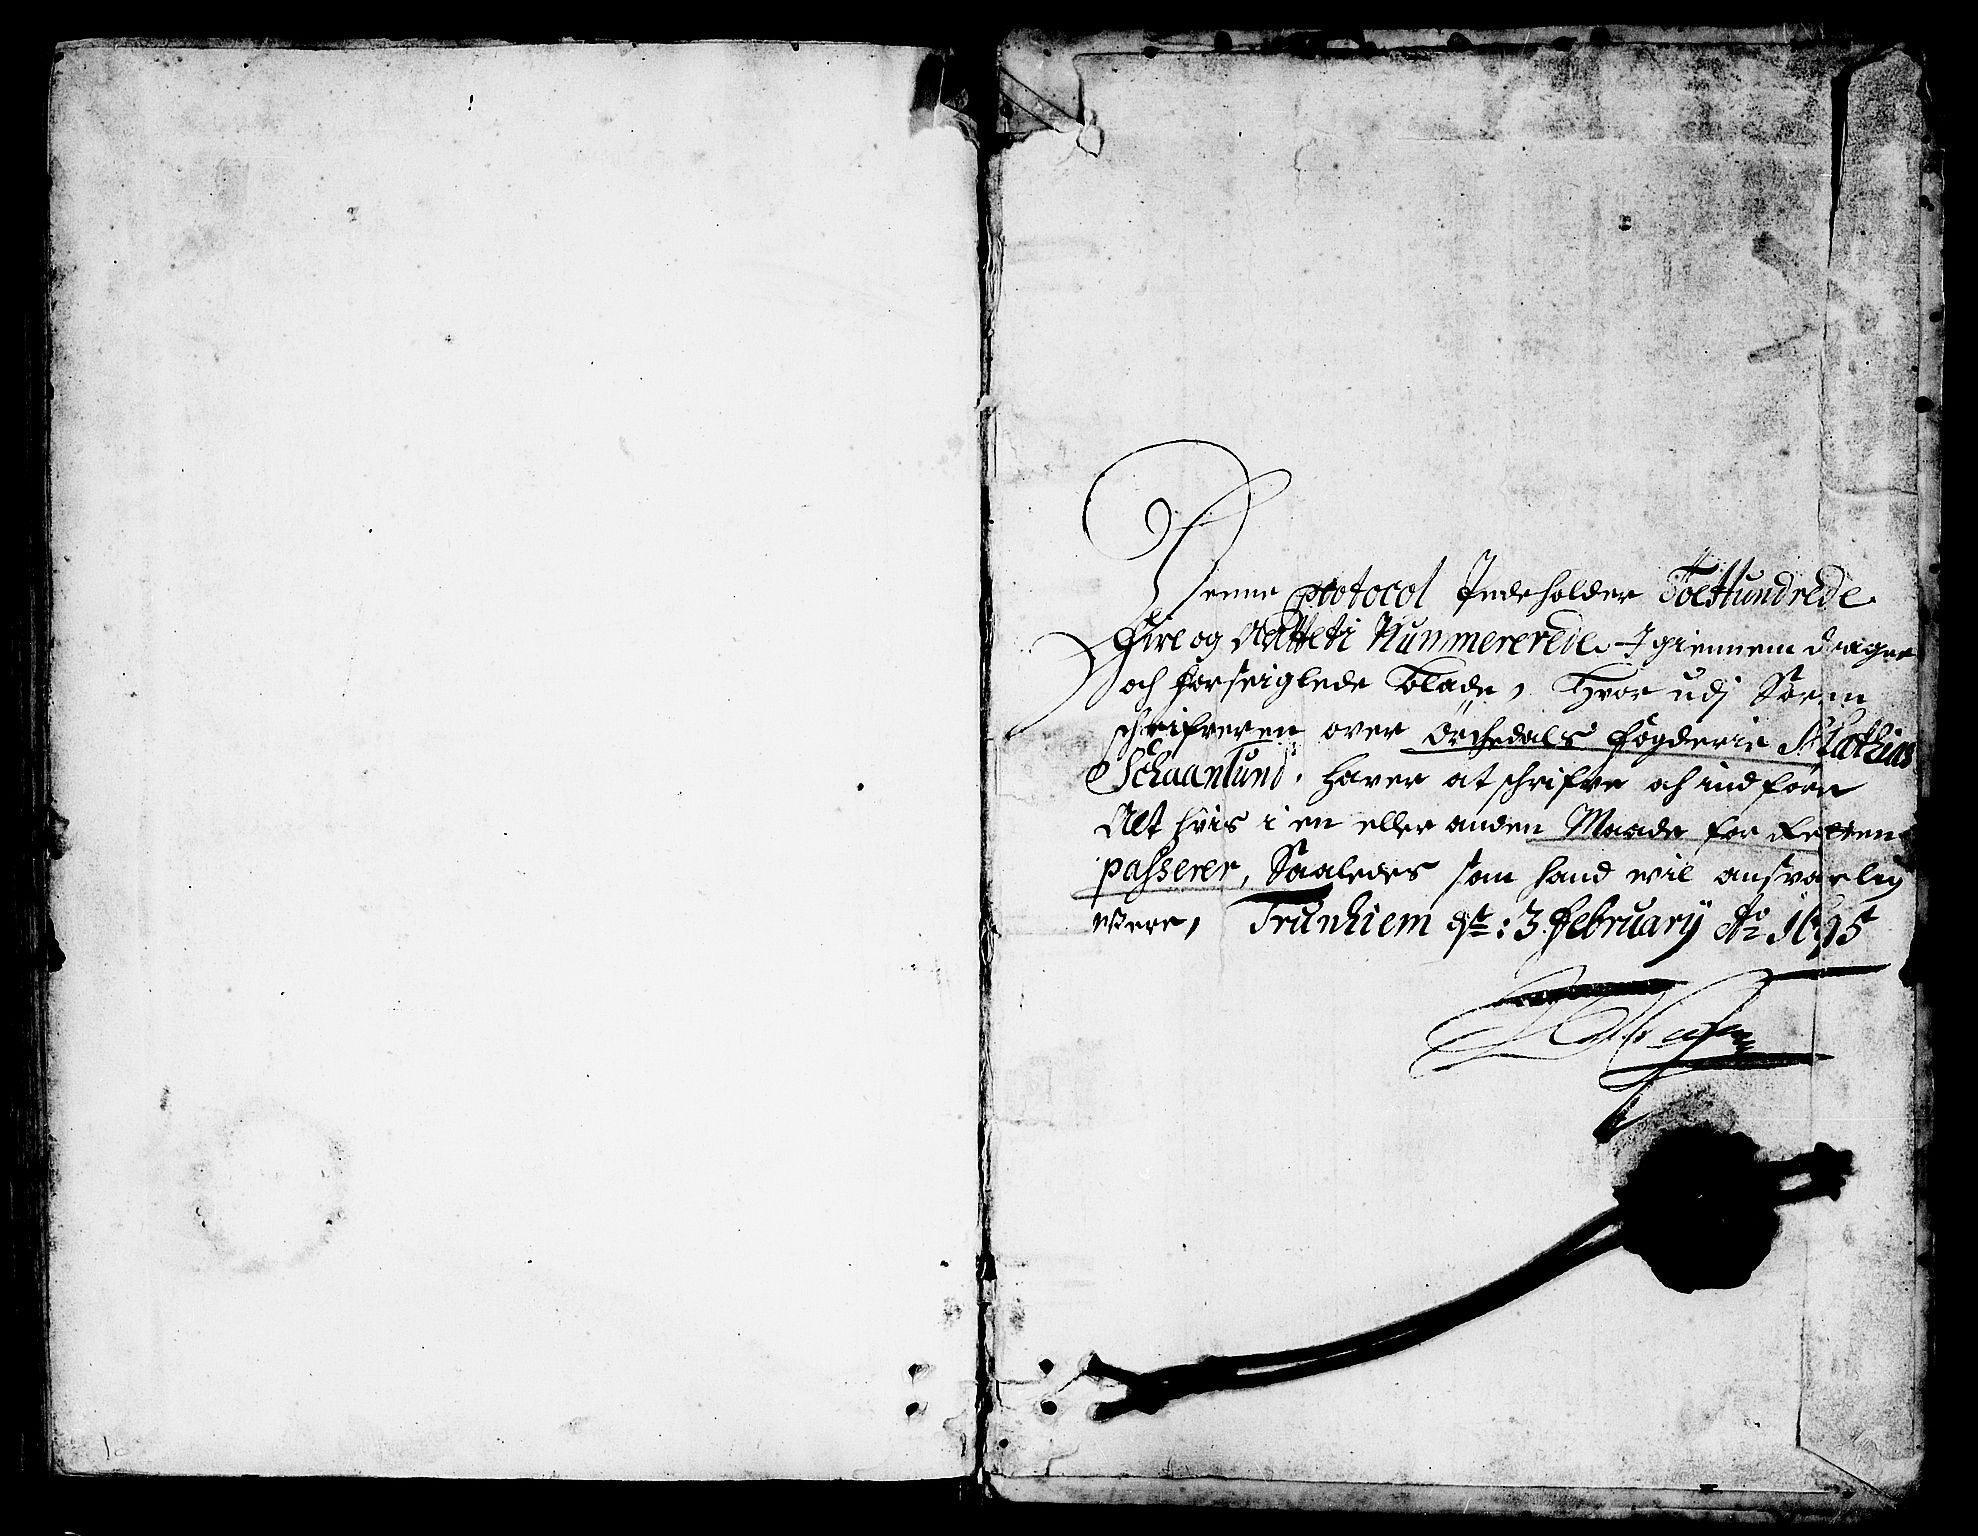 Denne protocol Indeholder Toehundrede
fire og Aatteti Nummererede Igiennem dragne
och forseiglede Blade, Hvor udj Soren
schrifveren over Örchedals fogderie Mathias
Schaanlund, haver at schrifve och indføre
Alt hvis i en eller anden Maade for Retten
passerer, Saaledes som hand vil ansvarlig
Være, Trunhiem d: 3 february Ao 1695